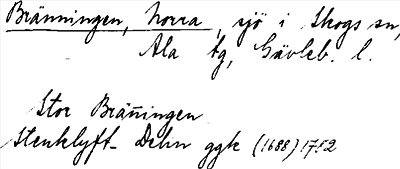 Bränningen, Norra, sjö i Skogs sn,
Ala tg, Gävleb. l.
Stor Bräningen
Stenklyft- Dehn ggk (1688) 1752